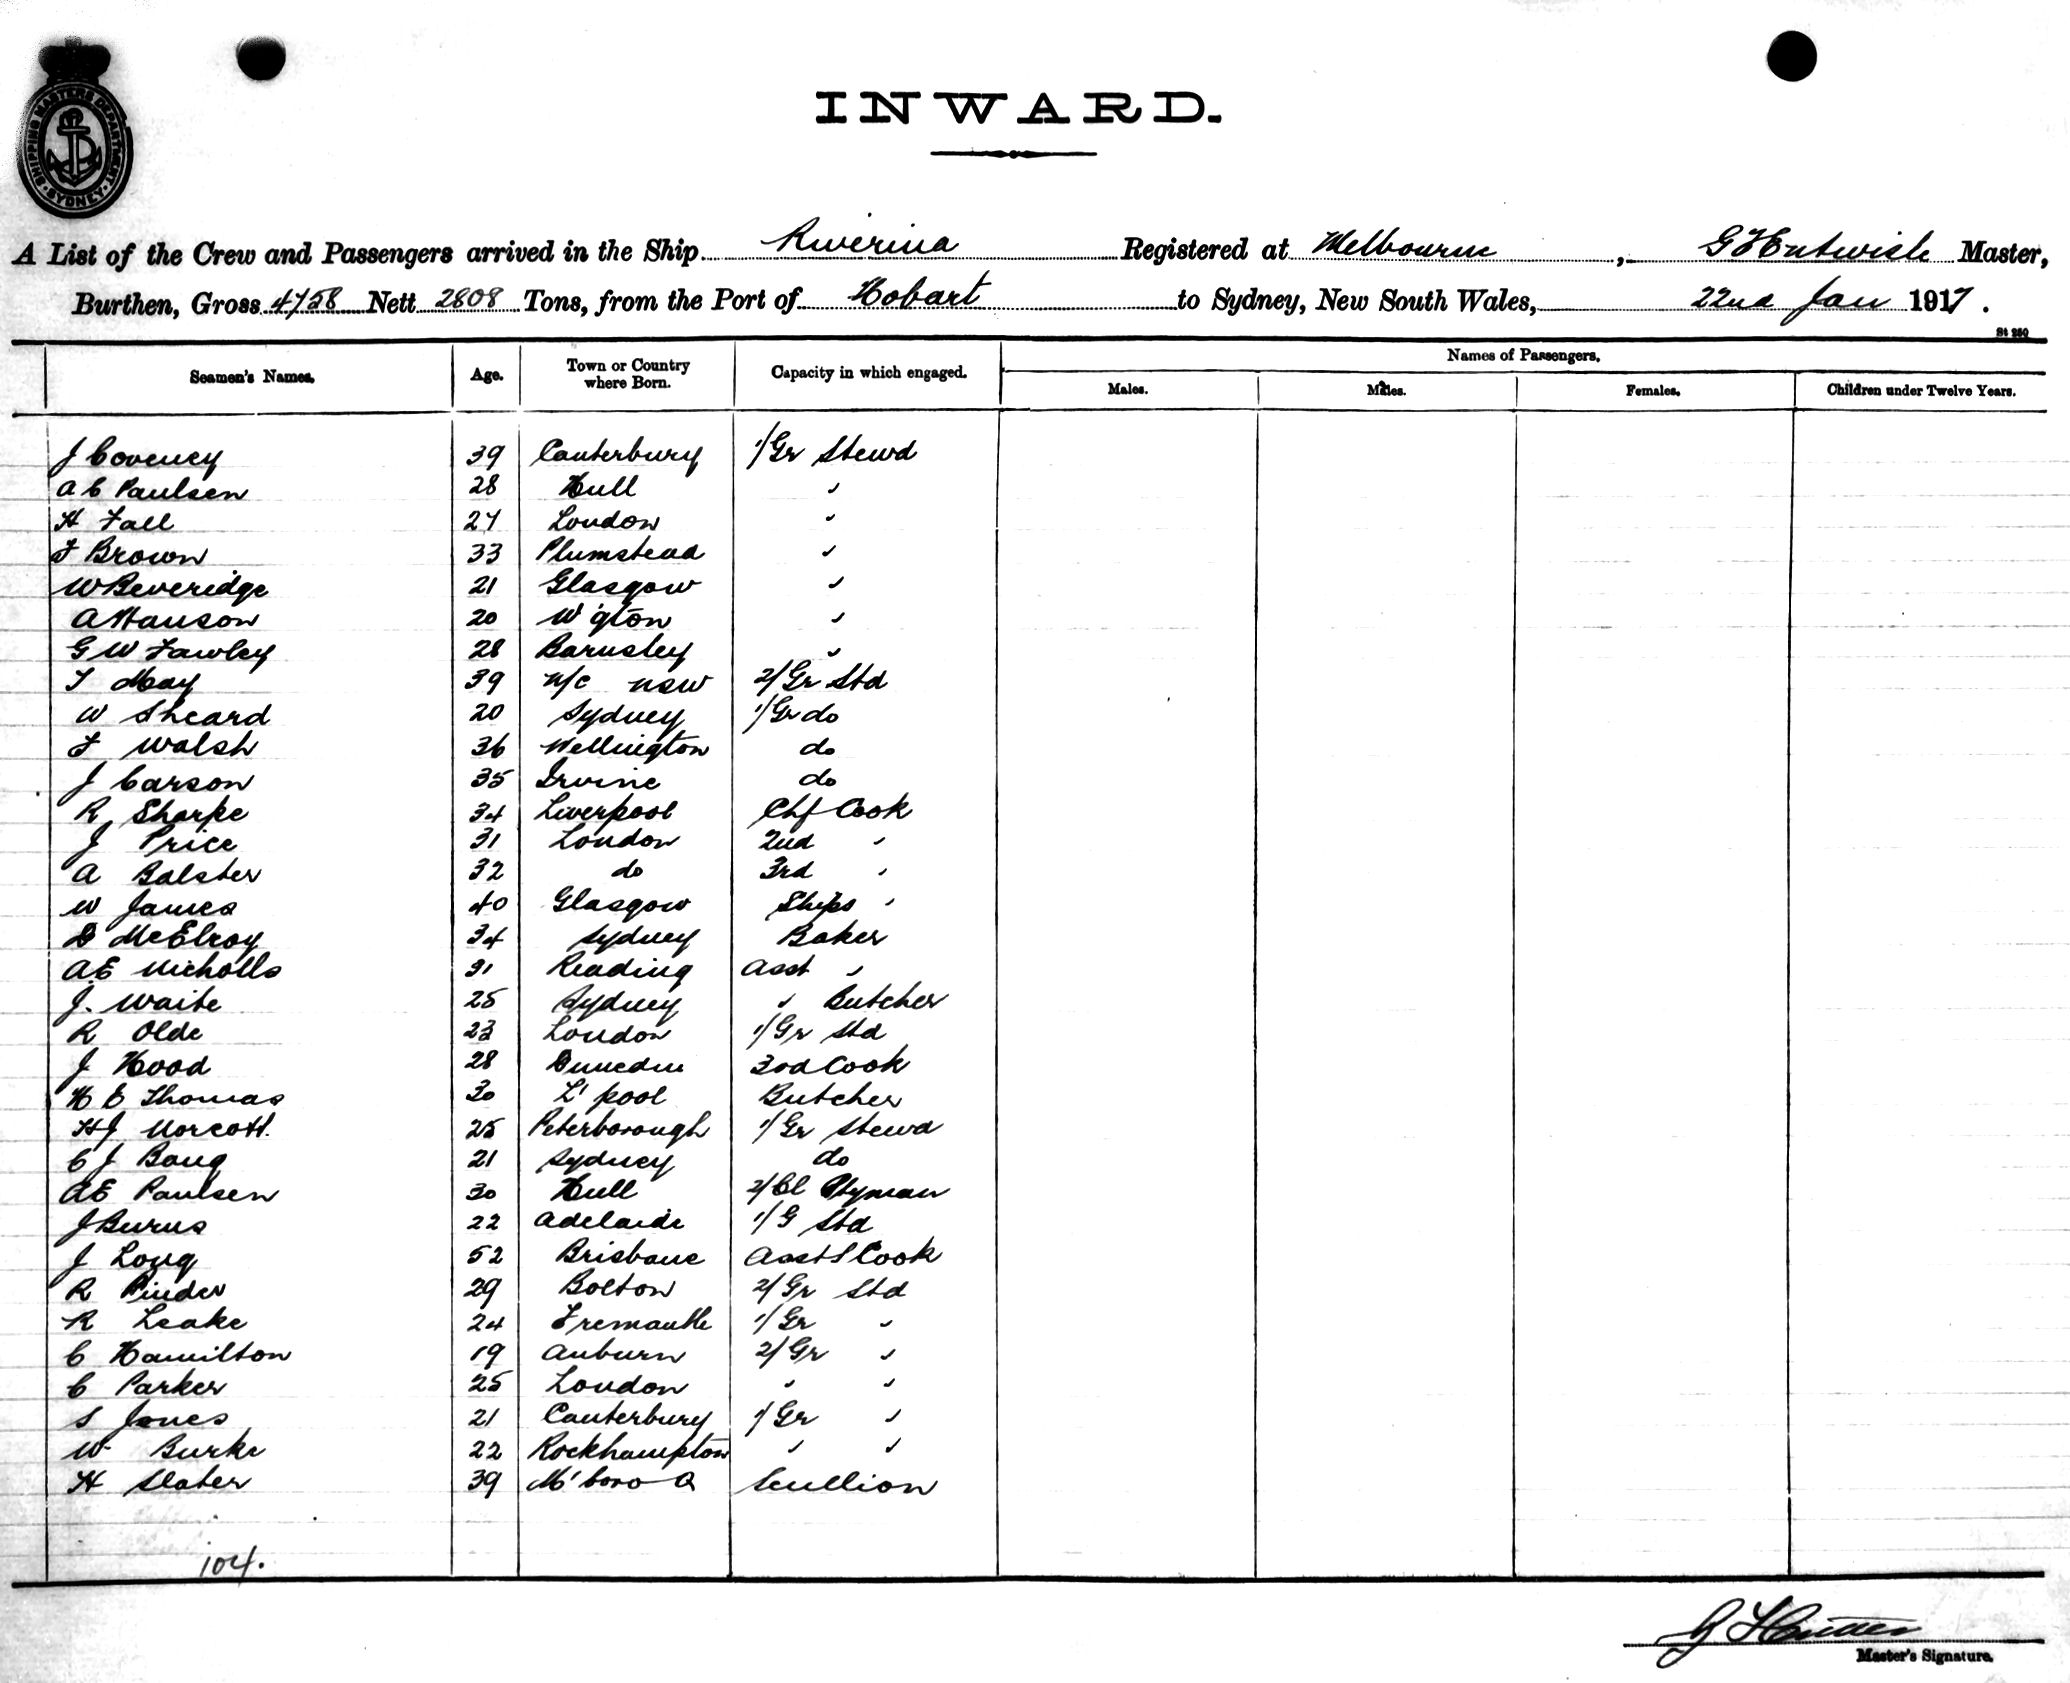 SHIPPING MASTERS DEPARTMENT. SYDNEY
INWARD.
A List of the Crew and Passengers arrived in the Ship Riverina Registered at Melbourne, G F Entwisle Master,
Burthen, Gross 4758 Nett 2808 Tons, from the Port of Hobart to Sydney, New South Wales, 22nd Jan 1917.
St 250
Seamen's Names. Age. Town or Country where Born. Capacity in which engaged. Names of Passengers.
Males. Males. Females. Children under Twelve Years.
J Coveney 39 Canterbury 1/Gr Stewd
A C Paulsen 28 Hull "
H Fall 27 London "
F Brown 33 Plumstead "
W Beveridge 21 Glasgow "
A Hanson 20 W'gton "
G W Fawley 28 Barnsley "
T May 39 N/C NSW 2/Gr Std
W Sheard 20 Sydney 1/Gr do
F Walsh 36 Wellington do
J Carson 35 Irvine do
R Sharpe 34 Liverpool Chf Cook
J Price 31 London 2nd "
A Balster 32 do 3rd "
W James 40 Glasgow Ships "
D McElroy 34 Sydney Baker
A E Nicholls 31 Reading Asst "
J. Waite 25 Sydney " Butcher
R Olde 23 London 1/Gr Std
J Hood 28 Dunedin 3rd Cook
H E Thomas 30 L'pool Butcher
H J Norcott. 25 Peterborough 1/Gr Stewd
C J Bang 21 Sydney do
A E Paulsen 30 Hull 2/Cl Ptyman
J Burns 22 Adelaide 1/G Std
J Long 52 Brisbane Asst S Cook
R Pinder 29 Bolton 2/Gr Std
R Leake 24 Fremantle 1/Gr "
C Hamilton 19 Auburn 2/Gr "
C Parker 25 London " "
S Jones 21 Canterbury 1/Gr "
W Burke 22 Rockhampton " "
H Slater 39 M'boro Q Scullion
104.
Master's Signature.